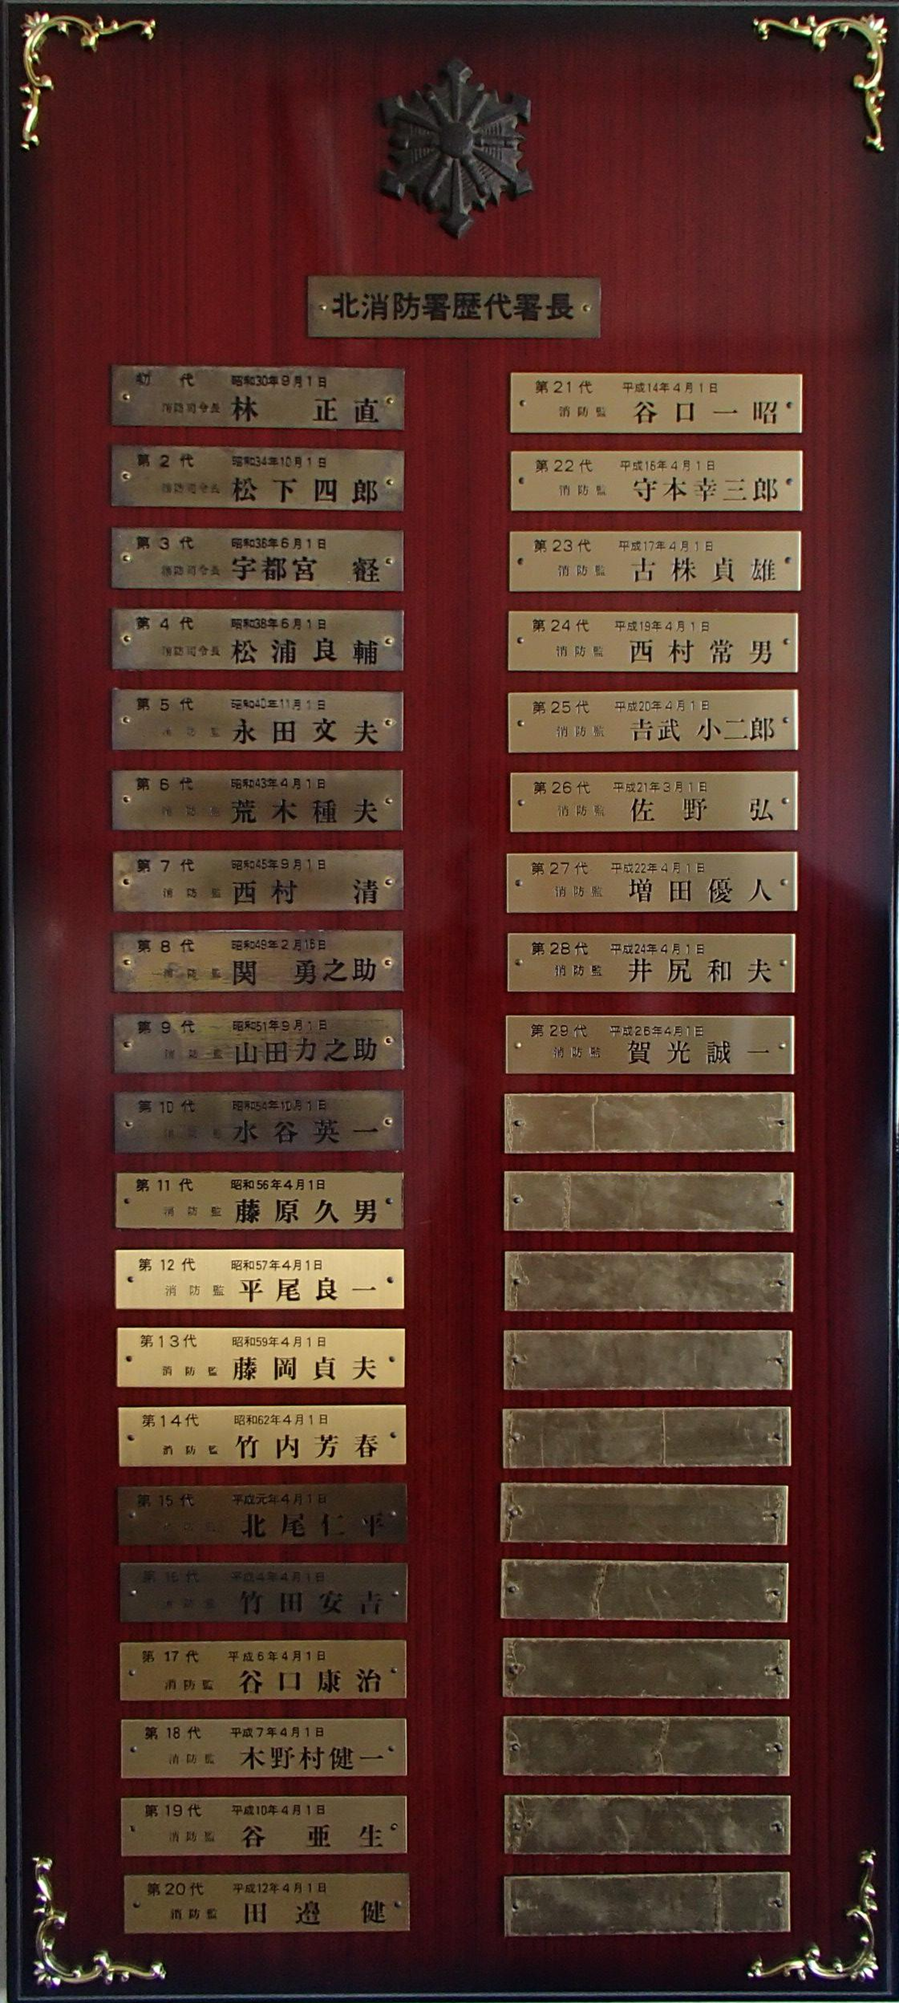 北消防署歴代署長
初代 昭和30年9月1日
消防司令長 林 正直
第2代 昭和34年10月1日
消防司令長 松下四郎
第3代 昭和36年6月1日
消防司令長 宇都宮 経
第4代 昭和38年6月1日
消防司令長 松浦良輔
第5代 昭和40年11月1日
消防監 永田文夫
第6代 昭和43年4月1日
消防監 荒木種夫
第7代 昭和45年9月1日
消防監 西村 清
第8代 昭和49年2月15日
消防監 関 勇之助
第9代 昭和51年9月1日
消防監 山田力之助
第10代 昭和54年10月1日
消防監 水谷英一
第11代 昭和56年4月1日
消防監 藤原久男
第12代 昭和57年4月1日
消防監 平尾良一
第13代 昭和59年4月1日
消防監 藤岡貞夫
第14代 昭和62年4月1日
消防監 竹内芳春
第15代 平成元年4月1日
消防監 北尾仁平
第16代 平成4年4月1日
消防監 竹田安吉
第17代 平成6年4月1日
消防監 谷口康治
第18代 平成7年4月1日
消防監 木野村健一
第19代 平成10年4月1日
消防監 谷 亜生
第20代 平成12年4月1日
消防監 田邉 健
第21代 平成14年4月1日
消防監 谷口一昭
第22代 平成16年4月1日
消防監 守本幸三郎
第23代 平成17年4月1日
消防監 古株貞雄
第24代 平成19年4月1日
消防監 西村常男
第25代 平成20年4月1日
消防監 吉武小二郎
第26代 平成21年3月1日
消防監 佐野 弘
第27代 平成22年4月1日
消防監 増田優人
第28代 平成24年4月1日
消防監 井尻和夫
第29代 平成26年4月1日
消防監 賀光誠一